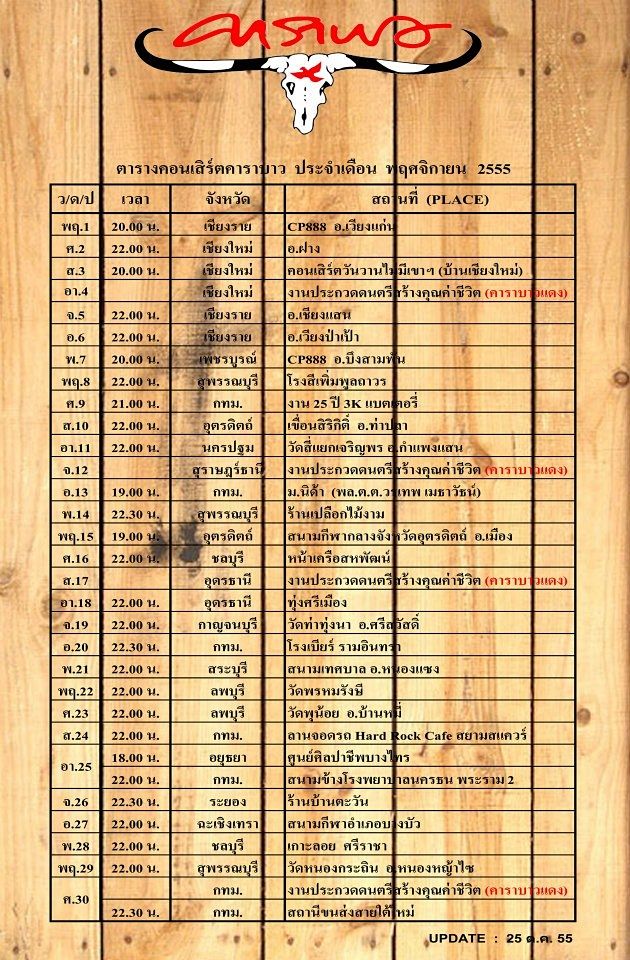 คาราบาว
ตารางคอนเสิร์ตคาราบาว ประจำเดือน พฤศจิกายน 2555
ว/ด/ป เวลา จังหวัด สถานที่ (PLACE)
พฤ.1 20.00 น. เชียงราย CP888 อ.เวียงแก่น
ศ.2 22.00 น. เชียงใหม่ อ.ฝาง
ส.3 20.00 น. เชียงใหม่ คอนเสิร์ตวันวานไม่มีเขาฯ (บ้านเชียงใหม่)
อา.4 เชียงใหม่ งานประกวดดนตรีสร้างคุณค่าชีวิต (คาราบาวแดง)
จ.5 22.00 น. เชียงราย อ.เชียงแสน
อ.6 22.00 น. เชียงราย อ.เวียงป่าเป้า
พ.7 20.00 น. เพชรบูรณ์ CP888 อ.บึงสามพัน
พฤ.8 22.00 น. สุพรรณบุรี โรงสีเพิ่มพูลถาวร
ศ.9 21.00 น. กทม. งาน 25 ปี 3K แบตเตอรี่
ส.10 22.00 น. อุตรดิตถ์ เขื่อนสิริกิติ์ อ.ท่าปลา
อา.11 22.00 น. นครปฐม วัดสี่แยกเจริญพร อ.กำแพงแสน
จ.12 สุราษฎร์ธานี งานประกวดดนตรีสร้างคุณค่าชีวิต (คาราบาวแดง)
อ.13 19.00 น. กทม. ม.นิด้า (พล.ต.ต.วรเทพ เมธาวัธน์)
พ.14 22.30 น. สุพรรณบุรี ร้านเปลือกไม้งาม
พฤ.15 19.00 น. อุตรดิตถ์ สนามกีฬากลางจังหวัดอุตรดิตถ์ อ.เมือง
ศ.16 22.00 น. ชลบุรี หน้าเครือสหพัฒน์
ส.17 อุดรธานี งานประกวดดนตรีสร้างคุณค่าชีวิต (คาราบาวแดง)
อา.18 22.00 น. อุดรธานี ทุ่งศรีเมือง
จ.19 22.00 น. กาญจนบุรี วัดท่าทุ่งนา อ.ศรีสวัสดิ์
อ.20 22.30 น. กทม. โรงเบียร์ รามอินทรา
พ.21 22.00 น. สระบุรี สนามเทศบาล อ.หนองแซง
พฤ.22 22.00 น. ลพบุรี วัดพรหมรังษี
ศ.23 22.00 น. ลพบุรี วัดพุน้อย อ.บ้านหมี่
ส.24 22.00 น. กทม. ลานจอดรถ Hard Rock Cafe สยามสแควร์
อา.25 18.00 น. อยุธยา ศูนย์ศิลปาชีพบางไทร
22.00 น. กทม. สนามข้างโรงพยาบาลนครธน พระราม 2
จ.26 22.30 น. ระยอง ร้านบ้านตะวัน
อ.27 22.00 น. ฉะเชิงเทรา สนามกีฬาอำเภอบางบัว
พ.28 22.00 น. ชลบุรี เกาะลอย ศรีราชา
พฤ.29 22.00 น. สุพรรณบุรี วัดหนองกระถิน อ.หนองหญ้าไซ
ศ.30 กทม. งานประกวดดนตรีสร้างคุณค่าชีวิต (คาราบาวแดง)
22.30 น. กทม. สถานีขนส่งสายใต้ใหม่
UPDATE : 25 ต.ค. 55